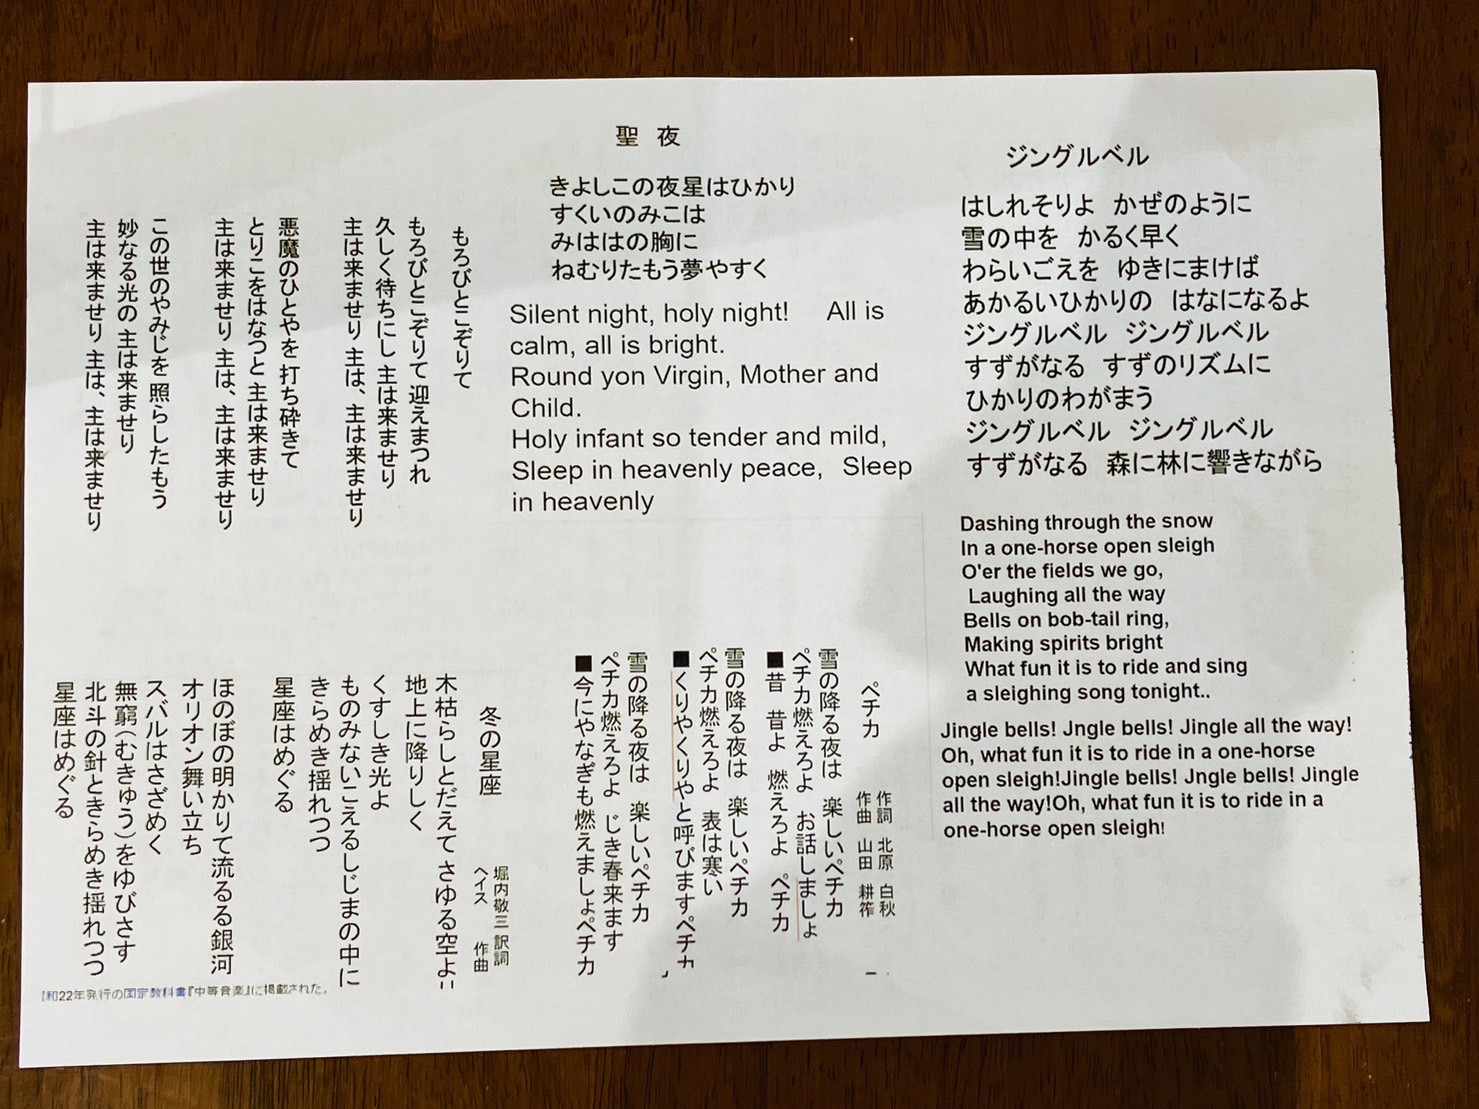 ジングルベル
はしれそりよ かぜのように
雪の中を かるく早く
わらいごえを ゆきにまけば
あかるいひかりの はなになるよ
ジングルベル ジングルベル
すずがなる すずのリズムに
ひかりのわがまう
ジングルベル ジングルベル
すずがなる 森に林に響きながら
Dashing through the snow
In a one-horse open sleigh
O'er the fields we go,
Laughing all the way
Bells on bob-tail ring,
Making spirits bright
What fun it is to ride and sing
a sleighing song tonight..
Jingle bells! Jngle bells! Jingle all the way!
Oh, what fun it is to ride in a one-horse
open sleigh!Jingle bells! Jngle bells! Jingle
all the way!Oh, what fun it is to ride in a
one-horse open sleigh!
聖 夜
きよしこの夜星はひかり
すくいのみこは
みははの胸に
ねむりたもう夢やすく
Silent night, holy night! All is
calm, all is bright.
Round yon Virgin, Mother and
Child.
Holy infant so tender and mild,
Sleep in heavenly peace, Sleep
in heavenly
もろびとこぞりて
もろびとこぞりて 迎えまつれ
久しく待ちにし 主は来ませり
主は来ませり 主は、主は来ませり
悪魔のひとやを 打ち砕きて
とりこをはなつと 主は来ませり
主は来ませり 主は、主は来ませり
この世のやみじを 照らしたもう
妙なる光の 主は来ませり
主は来ませり 主は、主は来ませり
ペチカ
作詞 北原 白秋
作曲 山田 耕筰
雪の降る夜は 楽しいペチカ
ペチカ燃えろよ お話しましょ
■昔 昔よ 燃えろよ ペチカ
雪の降る夜は 楽しいペチカ
ペチカ燃えろよ 表は寒い
■くりやくりやと呼びますペチカ
雪の降る夜は 楽しいペチカ
ペチカ燃えろよ じき春来ます
■今にやなぎも燃えましょペチカ
冬の星座
堀内敬三 訳詞
ヘイス 作曲
木枯らしとだえて さゆる空より
地上に降りしく
くすしき光よ
ものみないこえるしじまの中に
きらめき揺れつつ
星座はめぐる
ほのぼの明かりて流るる銀河
オリオン舞い立ち
スバルはさざめく
無窮(むきゅう)をゆびさす
北斗の針ときらめき揺れつつ
星座はめぐる
和22年発行の国定教科書『中等音楽』に掲載された。